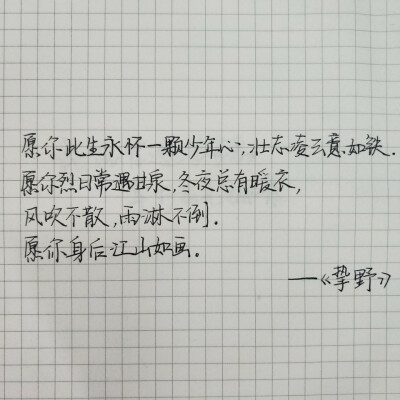 愿你此生永怀一颗少年心，壮志凌云意如铁．
愿你烈日常遇甘泉，冬夜总有暖衣，
风吹不散，雨淋不倒．
愿你身后江山如画．
——《挚野》